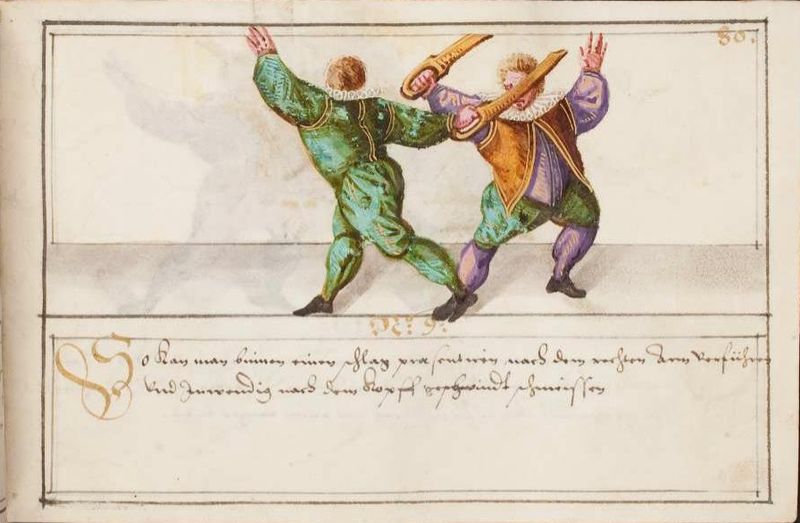 80.
No: 9.
So Kan man binnen einen schlag praesentiren nach dem rechten Arm verführen
und Inwendig nach dem Kopff geschwindt schmeissen